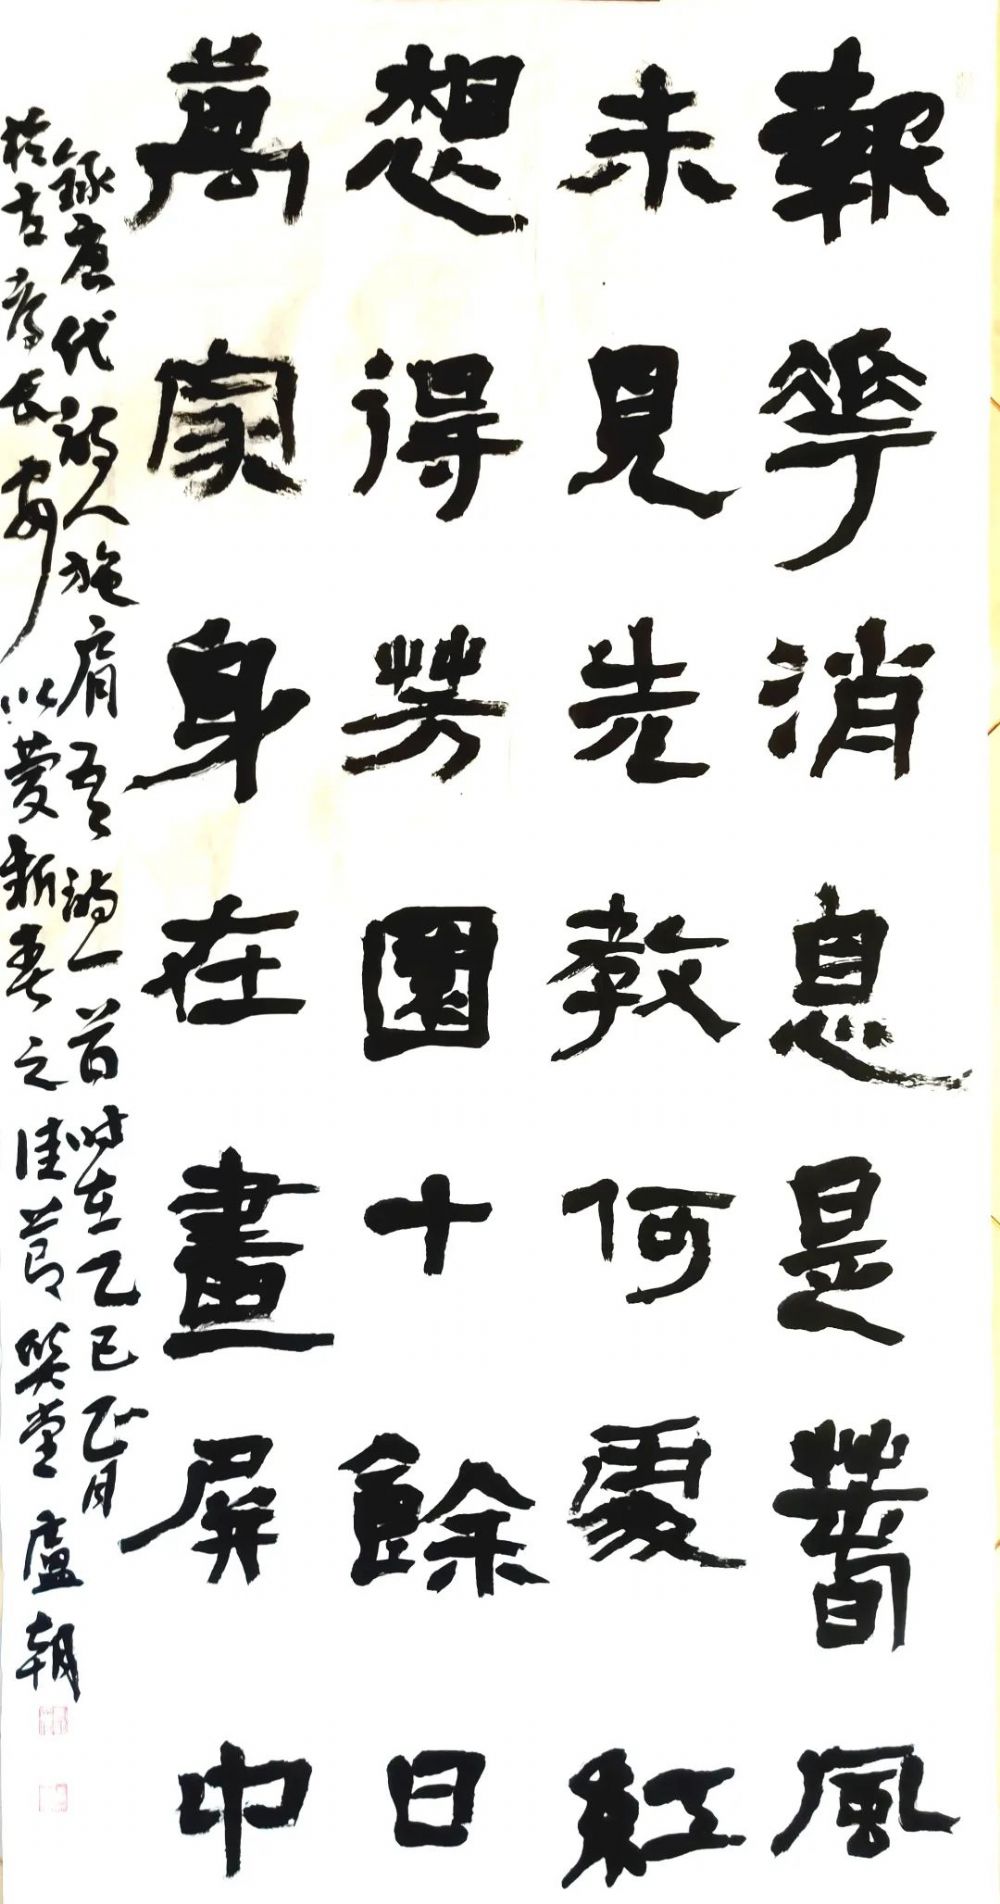 報花消息是春風
未見先教何處紅
想得芳園十餘日
萬家身在畫屏中
錄唐代詩人施肩吾詩一首時在乙巳正月
於古齊長安以慶新春之佳節笑堂盧朝